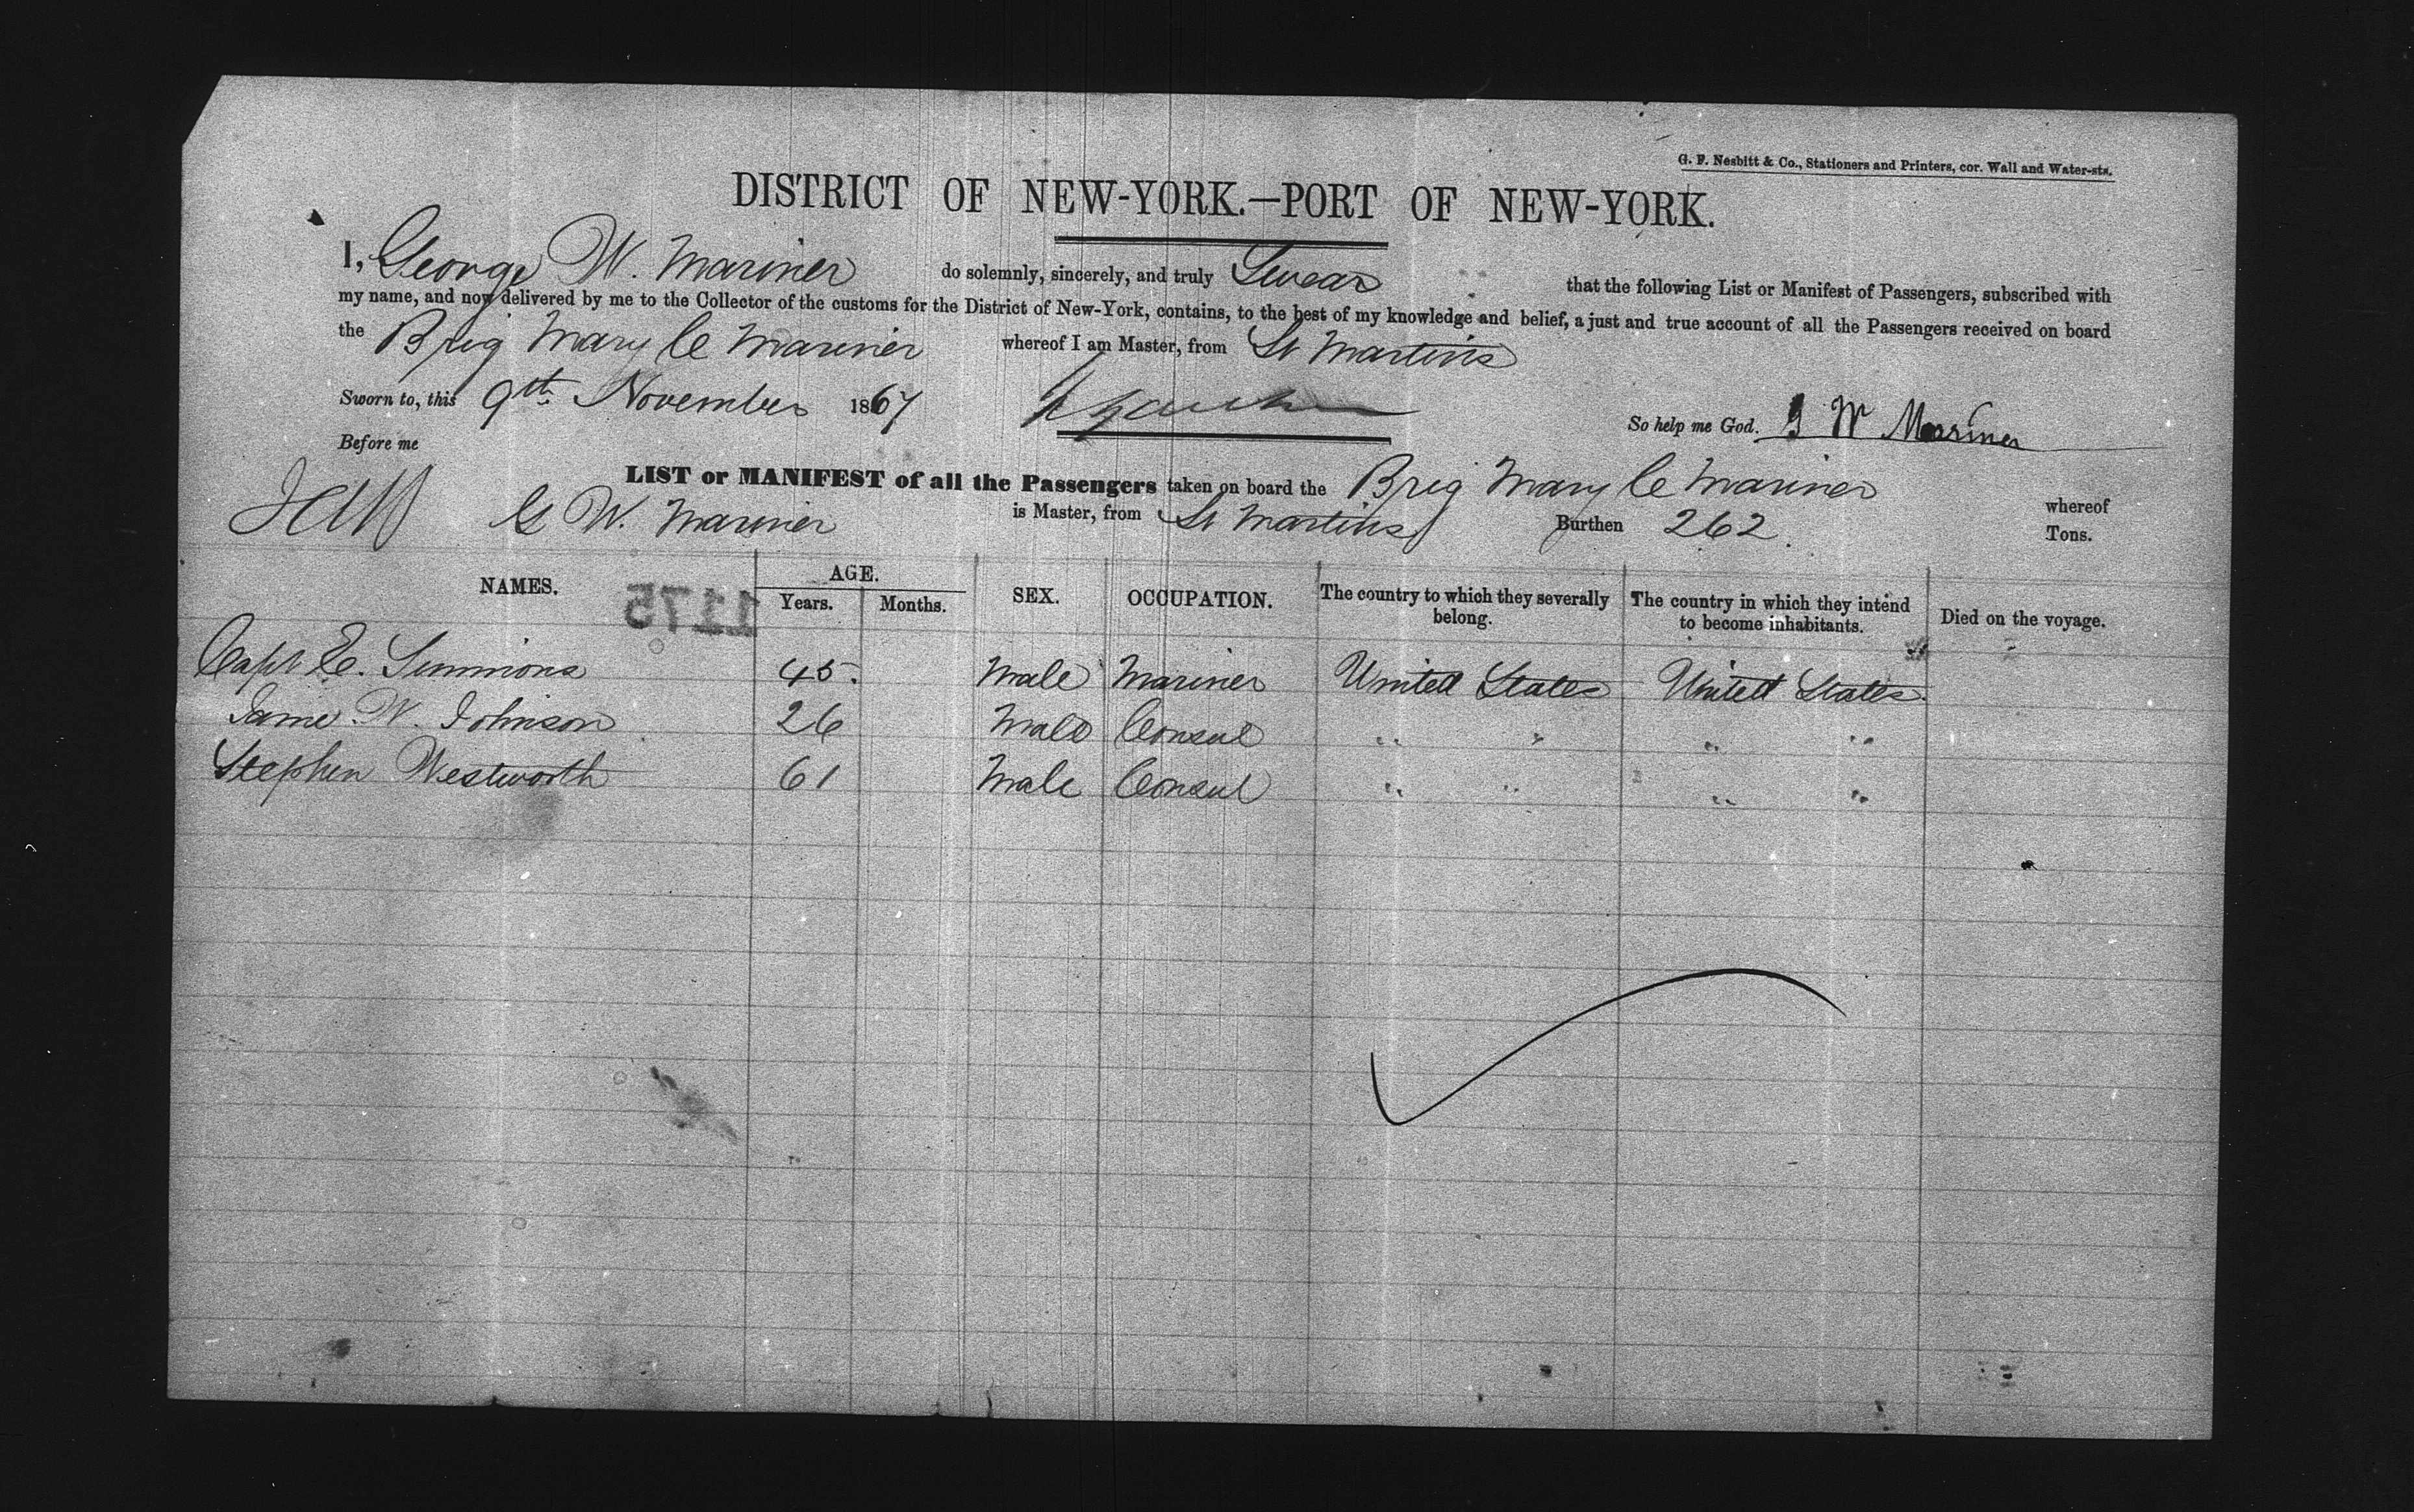 G. F. Nesbitt & Co., Stationers and Printers, cor. Wall and Water-sts.
DISTRICT OF NEW-YORK.—PORT OF NEW-YORK.
I, George W. Mariner do solemnly, sincerely, and truly Swear that the following List or Manifest of Passengers, subscribed with
my name, and now delivered by me to the Collector of the customs for the District of New-York, contains, to the best of my knowledge and belief, a just and true account of all the Passengers received on board
the Brig Mary C Mariner whereof I am Master, from St Martins
Sworn to, this 9th November 1867
So help me God. G W Mariner
Before me
LIST or MANIFEST of all the Passengers taken on board the Brig Mary C Mariner whereof
G W. Mariner is Master, from St Martins Burthen 262 Tons.
NAMES. AGE. Years. Months. SEX. OCCUPATION. The country to which they severally belong. The country in which they intend to become inhabitants. Died on the voyage.
1175
Capt E. Simmons 45. Male Mariner United States United States
Jame W. Johnson 26 Male Consul " " " "
Stephen Westworth 61 Male Consul " " " "